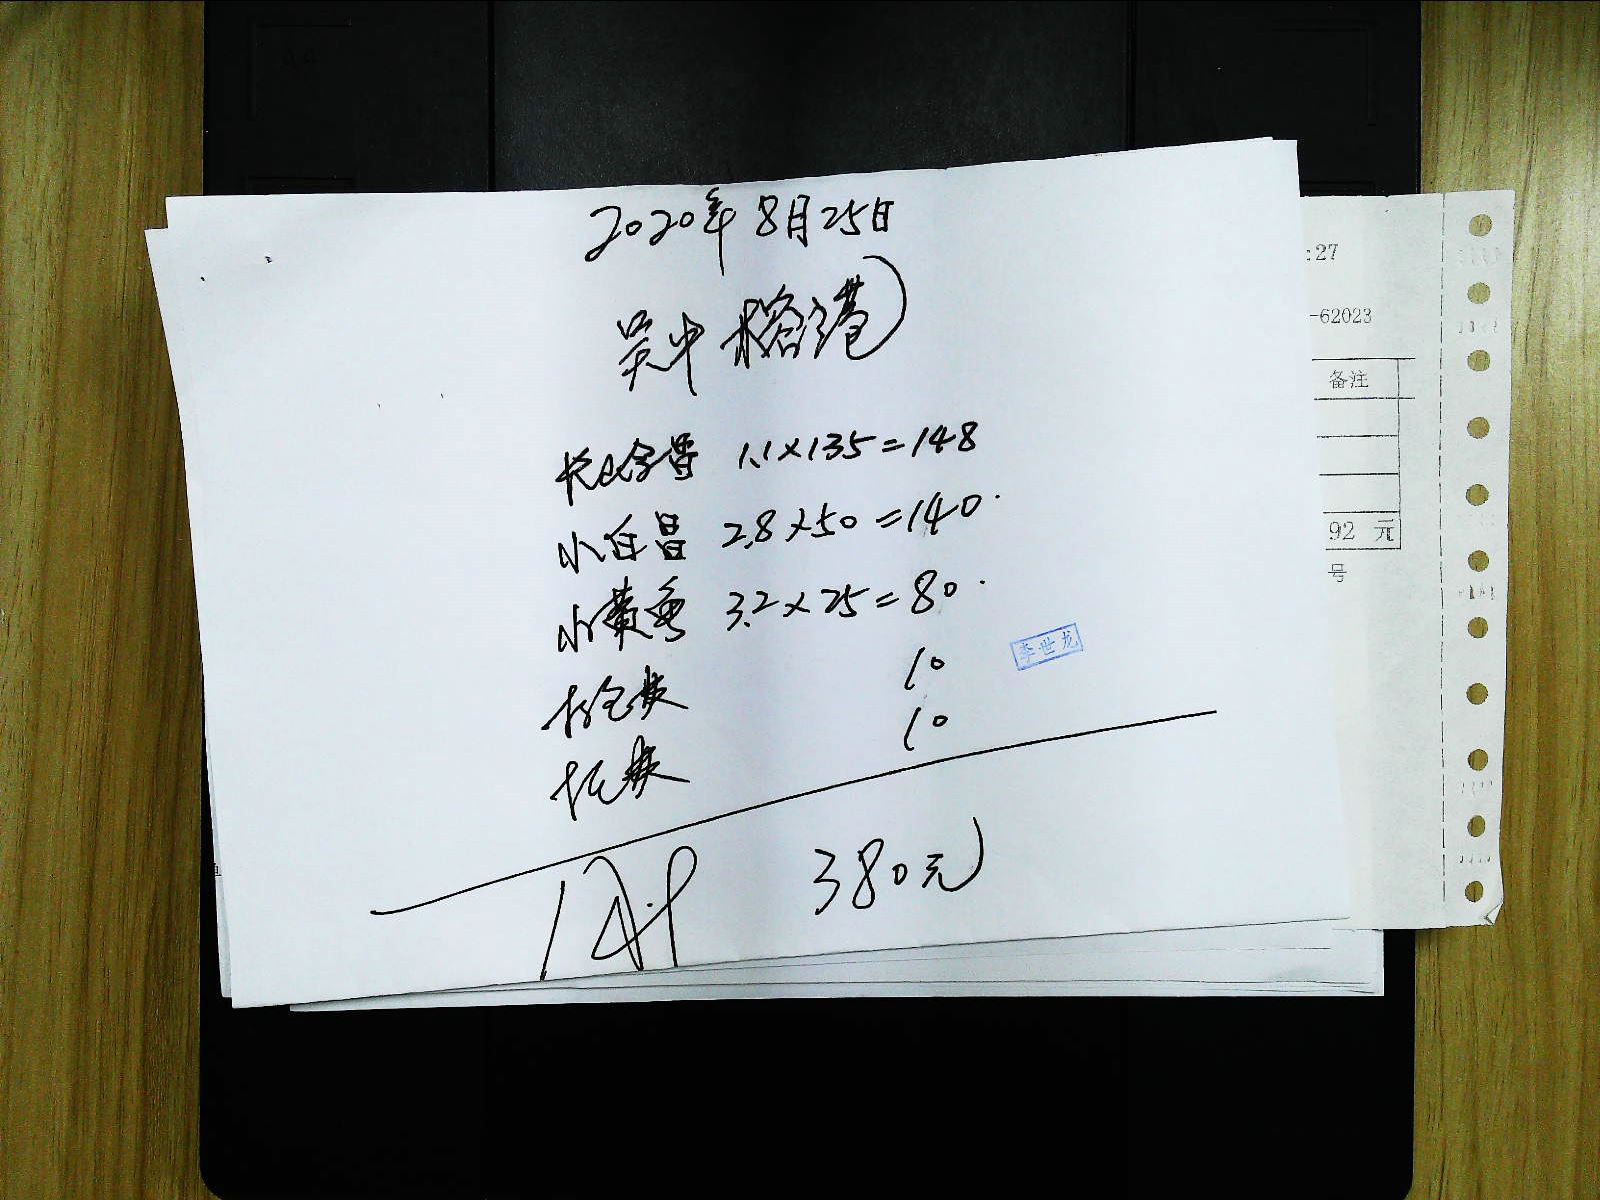 2020年8月25日
吴中 榕港
1.1×135=148
小白昌 2.8×50=140.
小黄鱼 3.2×25=80.
打包费 10
李世龙
托费 10
380元
:27
-62023
备注
92 元
号